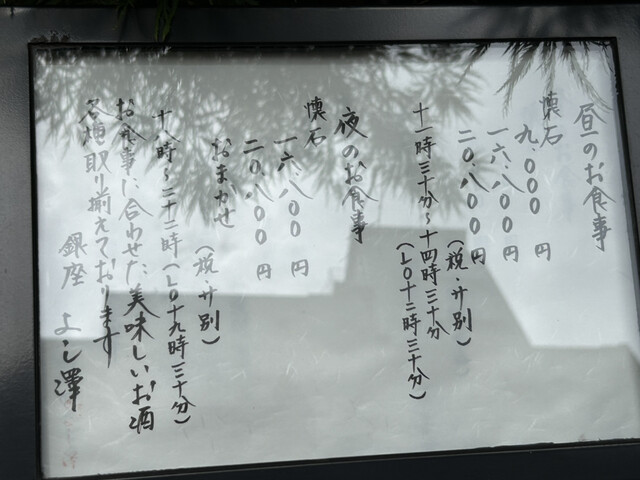 昼のお食事
懐石
九.000円
一六.八00円
二0.八00円
(税・サ別)
十一時三十分～十四時三十分
(LO十二時三十分)
夜のお食事
懐石
一六.八00円
二0.八00円
おまかせ
(税・サ別)
十八時～二十二時(LO十九時三十分)
お食事に合わせた美味しいお酒
各種取り揃えております
銀座 よし澤